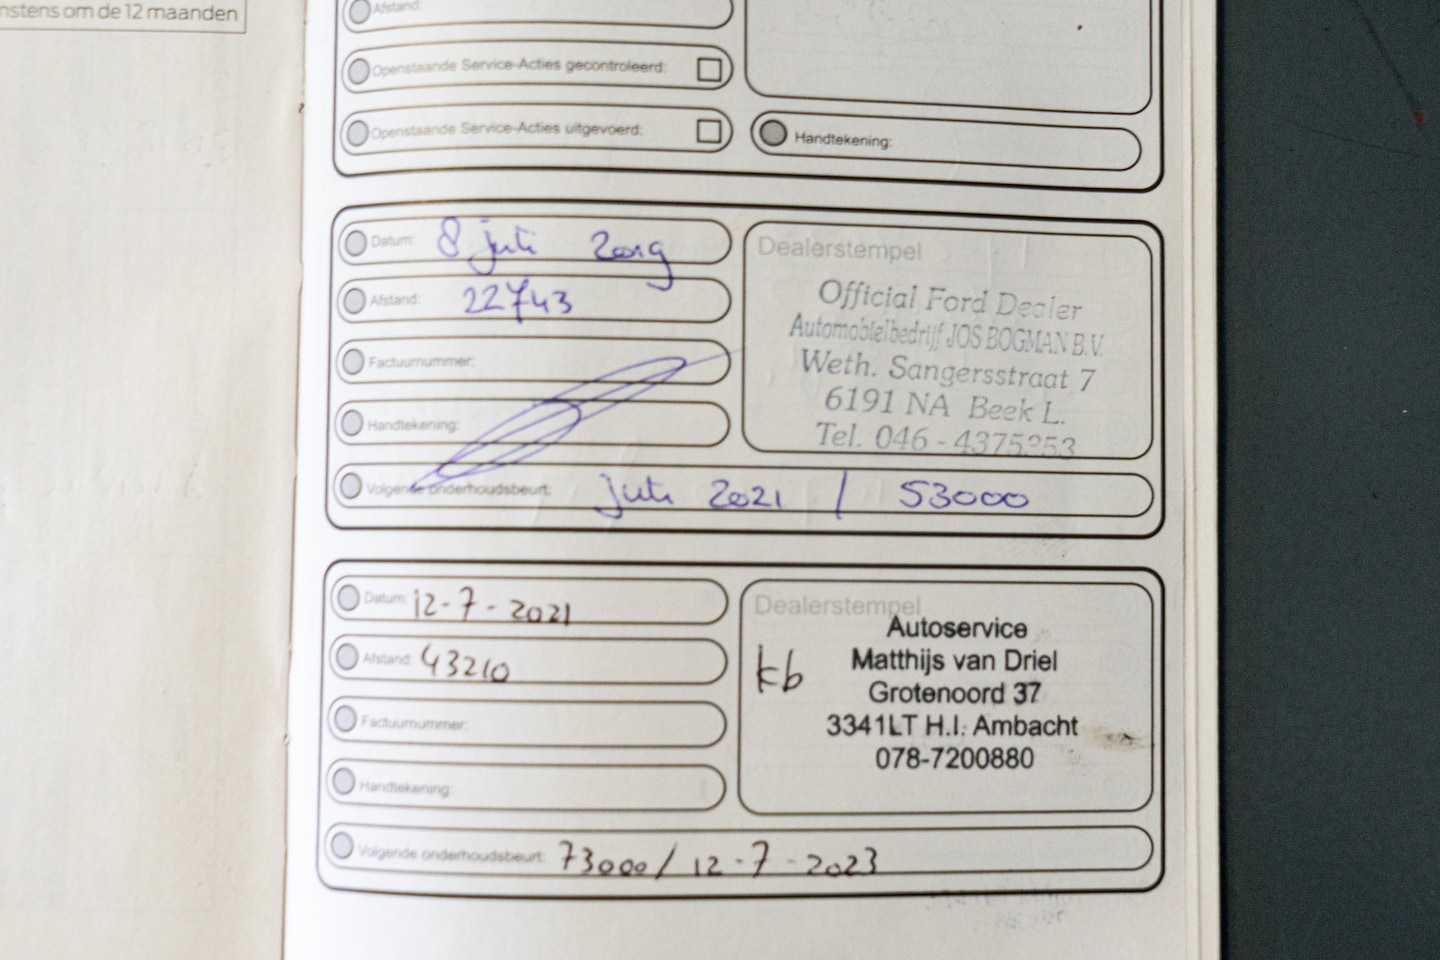 nstens om de 12 maanden
Afstand:
Openstaande Service-Acties gecontroleerd:
Openstaande Service-Acties uitgevoerd:
Handtekening:
Datum: 8 juli 2019
Afstand: 22743
Factuurnummer:
Handtekening:
Volgende onderhoudsbeurt: juli 2021 / 53000
Dealerstempel
Official Ford Dealer
Automobielbedrijf JOS BOGMAN B.V.
Weth. Sangersstraat 7
6191 NA Beek L.
Tel. 046 - 4375353
Datum: 12-7-2021
Afstand: 43210
Factuurnummer:
Handtekening:
Volgende onderhoudsbeurt: 73000 / 12-7-2023
Dealerstempel
kb
Autoservice
Matthijs van Driel
Grotenoord 37
3341LT H.I. Ambacht
078-7200880